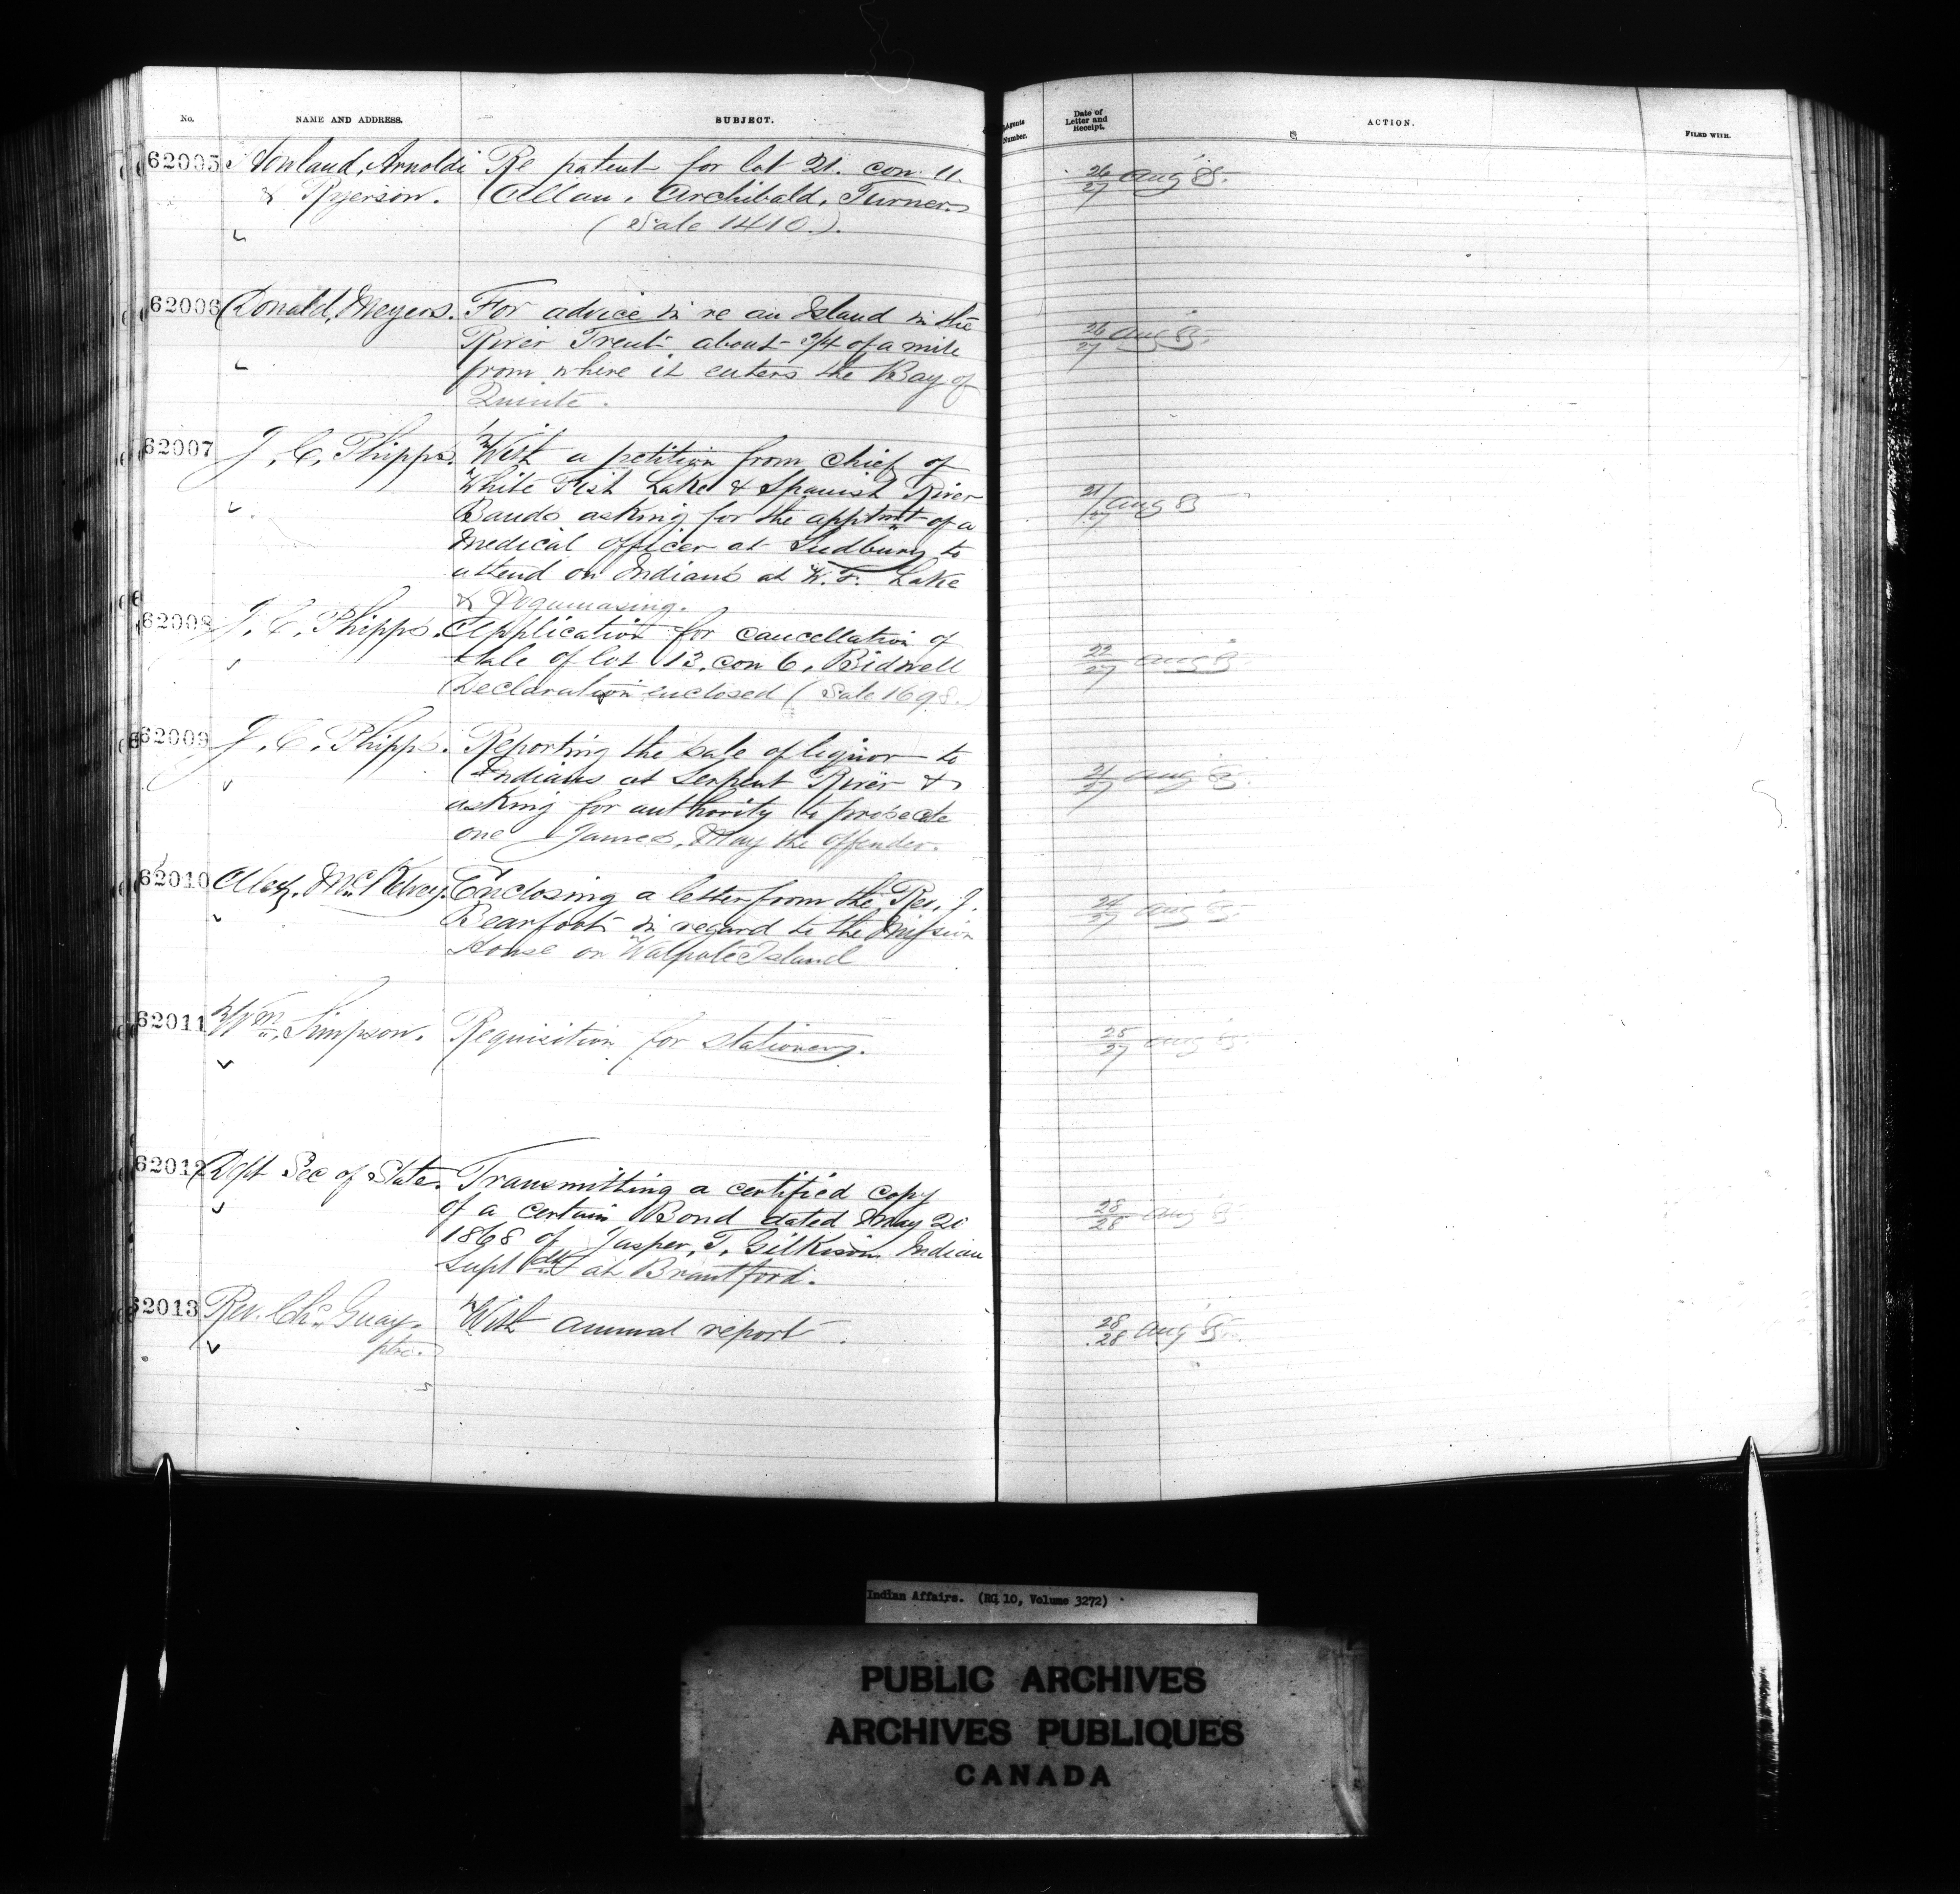 No. NAME AND ADDRESS. SUBJECT. Agents Number. Date of Letter and Receipt. ACTION. FILED WITH.
62005 Arnoldi Re patent for lot 21. con. 11. 26/27 Aug 85.
& Ryerson. Allan, Archibald, Turner
(Sale 1410.).
62006 Donald, Meyers. For advice in re an Island in the 26/27 Aug 85.
River Trent about 3/4 of a mile
from where it enters the Bay of
Quinte.
62007 J. C. Phipps. With a petition from Chief of 21/27 Aug 85
White Fish Lake & Spanish River
Bands asking for the apptmt of a
Medical officer at Sudbury to
attend on Indians at W. F. Lake
& Pogumasing.
62008 J. C. Phipps. Application for cancellation of 22/27 Aug 85.
sale of lot 13, con 6, Bidwell
Declaration enclosed (Sale 1698.)
62009 J. C. Phipps. Reporting the sale of liquor to 21/27 Aug 85.
Indians at Serpent River &
asking for authority to prosecute
one James, May the offender.
62010 Alex. McKelvey. Enclosing a letter from the Rev. J. 24/27 Aug 85.
Bearfoot in regard to the Mission
House on Walpole Island
62011 Wm. Simpson. Requisition for Stationery. 25/27 Aug 85.
62012 Dept Sec of State. Transmitting a certified copy 28/28 Aug 85
of a certain Bond dated May 20
1868 of Jasper, T, Gilkison Indian
Supt &c at Brantford.
62013 Rev. Chs. Guay, With annual report. 28/28 Aug 85.
ptre.
Indian Affairs. (RG 10, Volume 3272)
PUBLIC ARCHIVES
ARCHIVES PUBLIQUES
CANADA